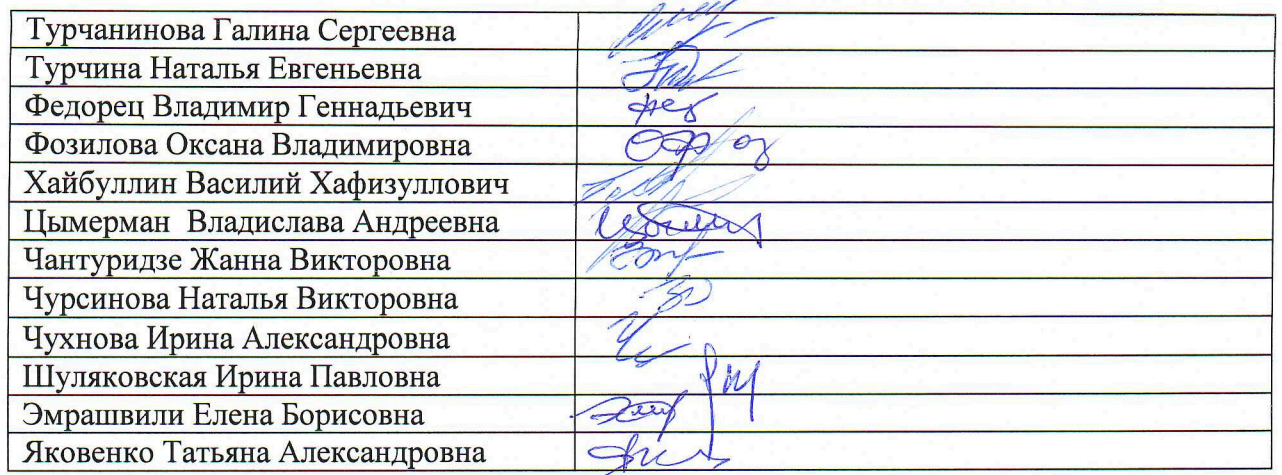 Турчанинова Галина Сергеевна
Турчина Наталья Евгеньевна
Федорец Владимир Геннадьевич
Фозилова Оксана Владимировна
Хайбуллин Василий Хафизуллович
Цымерман Владислава Андреевна
Чантуридзе Жанна Викторовна
Чурсинова Наталья Викторовна
Чухнова Ирина Александровна
Шуляковская Ирина Павловна
Эмрашвили Елена Борисовна
Яковенко Татьяна Александровна